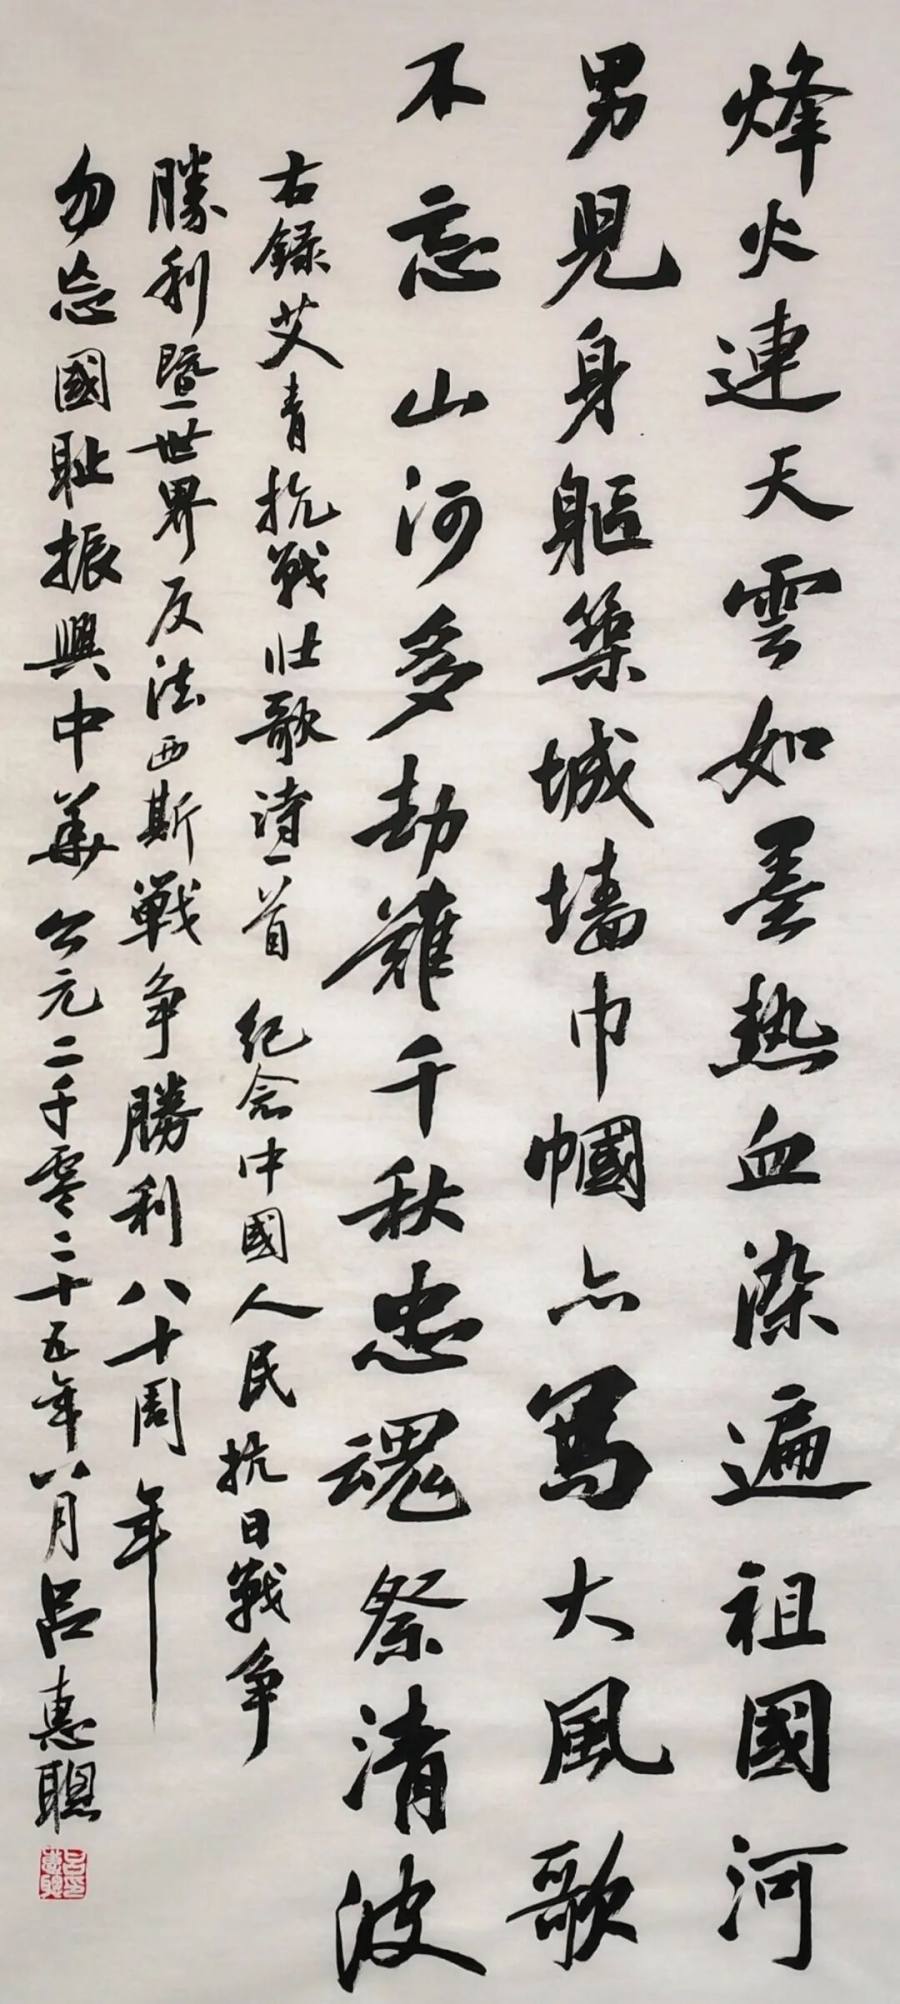 烽火連天雲如墨熱血染遍祖國河
男児身軀築城墻巾幗亦寫大風歌
不忘山河多劫難千秋忠魂祭清波
右録艾青抗戰壮歌詩一首 纪念中國人民抗日戰争
勝利暨世界反法西斯戰争勝利八十周年
勿忘國耻振興中華 公元二千零二十五年八月吕惠聰